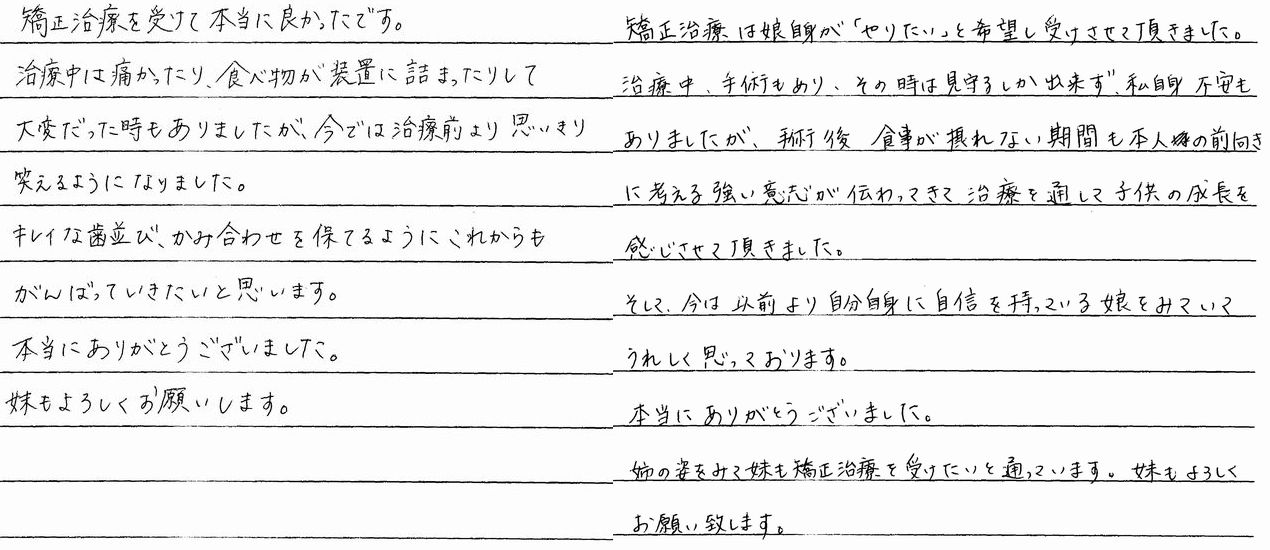 矯正治療を受けて本当に良かったです。
治療中は痛かったり、食べ物が装置に詰まったりして
大変だった時もありましたが、今では治療前より思いきり
笑えるようになりました。
キレイな歯並び、かみ合わせを保てるようにこれからも
がんばっていきたいと思います。
本当にありがとうございました。
妹もよろしくお願いします。
矯正治療は娘自身が「やりたい」と希望し受けさせて頂きました。
治療中、手術もあり、その時は見守るしか出来ず、私自身不安も
ありましたが、手術後食事が摂れない期間も本人の前向き
に考える強い意志が伝わってきて治療を通して子供の成長を
感じさせて頂きました。
そして、今は以前より自分自身に自信を持っている娘をみていて
うれしく思っております。
本当にありがとうございました。
姉の姿をみて妹も矯正治療を受けたいと通っています。妹もよろしく
お願い致します。